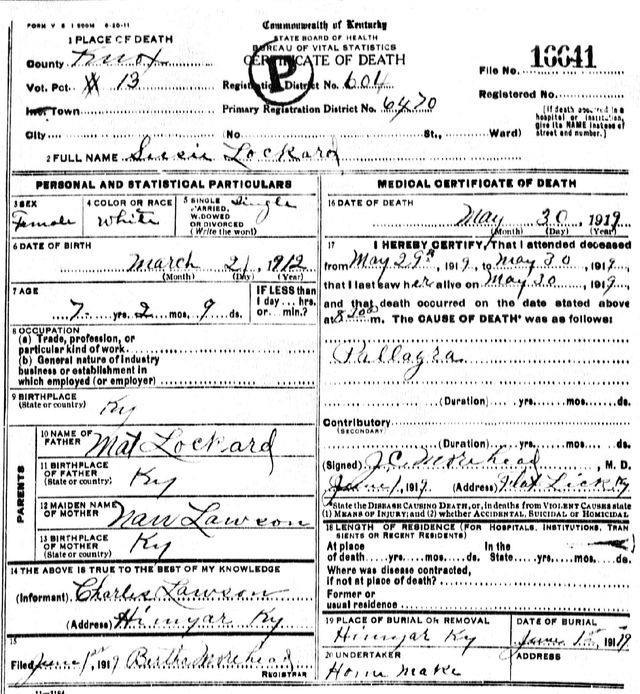 FORM V S 1 500M 6-20-11
Commonwealth of Kentucky
STATE BOARD OF HEALTH
BUREAU OF VITAL STATISTICS
CERTIFICATE OF DEATH
P
1 PLACE OF DEATH
County Knox
Vot. Pct. # 13
Inc. Town
City
Registration District No. 604
Primary Registration District No. 6470
(No St., Ward)
File No. 16641
Registered No.
[If death occurred in a hospital or institution, give its NAME instead of street and number.]
2 FULL NAME Susie Lockard
PERSONAL AND STATISTICAL PARTICULARS
3 SEX Female
4 COLOR OR RACE White
5 SINGLE MARRIED, WIDOWED OR DIVORCED (Write the word) Single
6 DATE OF BIRTH
March 21, 1912
(Month) (Day) (Year)
7 AGE
7 yrs. 2 mos. 9 ds.
IF LESS than 1 day... hrs. or min.?
8 OCCUPATION
(a) Trade, profession, or
particular kind of work
(b) General nature of industry
business or establishment in
which employed (or employer)
9 BIRTHPLACE
(State or country) Ky
PARENTS
10 NAME OF FATHER Mat Lockard
11 BIRTHPLACE OF FATHER (State or country) Ky
12 MAIDEN NAME OF MOTHER Nan Lawson
13 BIRTHPLACE OF MOTHER (State or country) Ky
14 THE ABOVE IS TRUE TO THE BEST OF MY KNOWLEDGE
(Informant) Charles Lawson
(Address) Himyar Ky
15
Filed June 1st 1919 Bertha Morehead
REGISTRAR
MEDICAL CERTIFICATE OF DEATH
16 DATE OF DEATH
May 30, 1919
(Month) (Day) (Year)
17 I HEREBY CERTIFY, That I attended deceased
from May 29th, 1919, to May 30, 1919,
that I last saw her alive on May 30, 1919,
and that death occurred on the date stated above
at 8:00 m. The CAUSE OF DEATH* was as follows:
Pellagra
(Duration) yrs. mos. ds.
Contributory
(SECONDARY)
(Duration) yrs. mos. ds.
(Signed) J.C. Morehead, M. D.
June 1, 1919 (Address) Flat Lick Ky
*State the DISEASE CAUSING DEATH, or, in deaths from VIOLENT CAUSES state
(1) MEANS OF INJURY; and (2) whether ACCIDENTAL, SUICIDAL or HOMICIDAL
18 LENGTH OF RESIDENCE (FOR HOSPITALS, INSTITUTIONS, TRANSIENTS OR RECENT RESIDENTS)
At place In the
of death yrs. mos. ds. State yrs. mos. ds.
Where was disease contracted,
if not at place of death?
Former or
usual residence
19 PLACE OF BURIAL OR REMOVAL
Himyar Ky
DATE OF BURIAL
June 1st, 1919
20 UNDERTAKER
Home Make
ADDRESS
11-3184